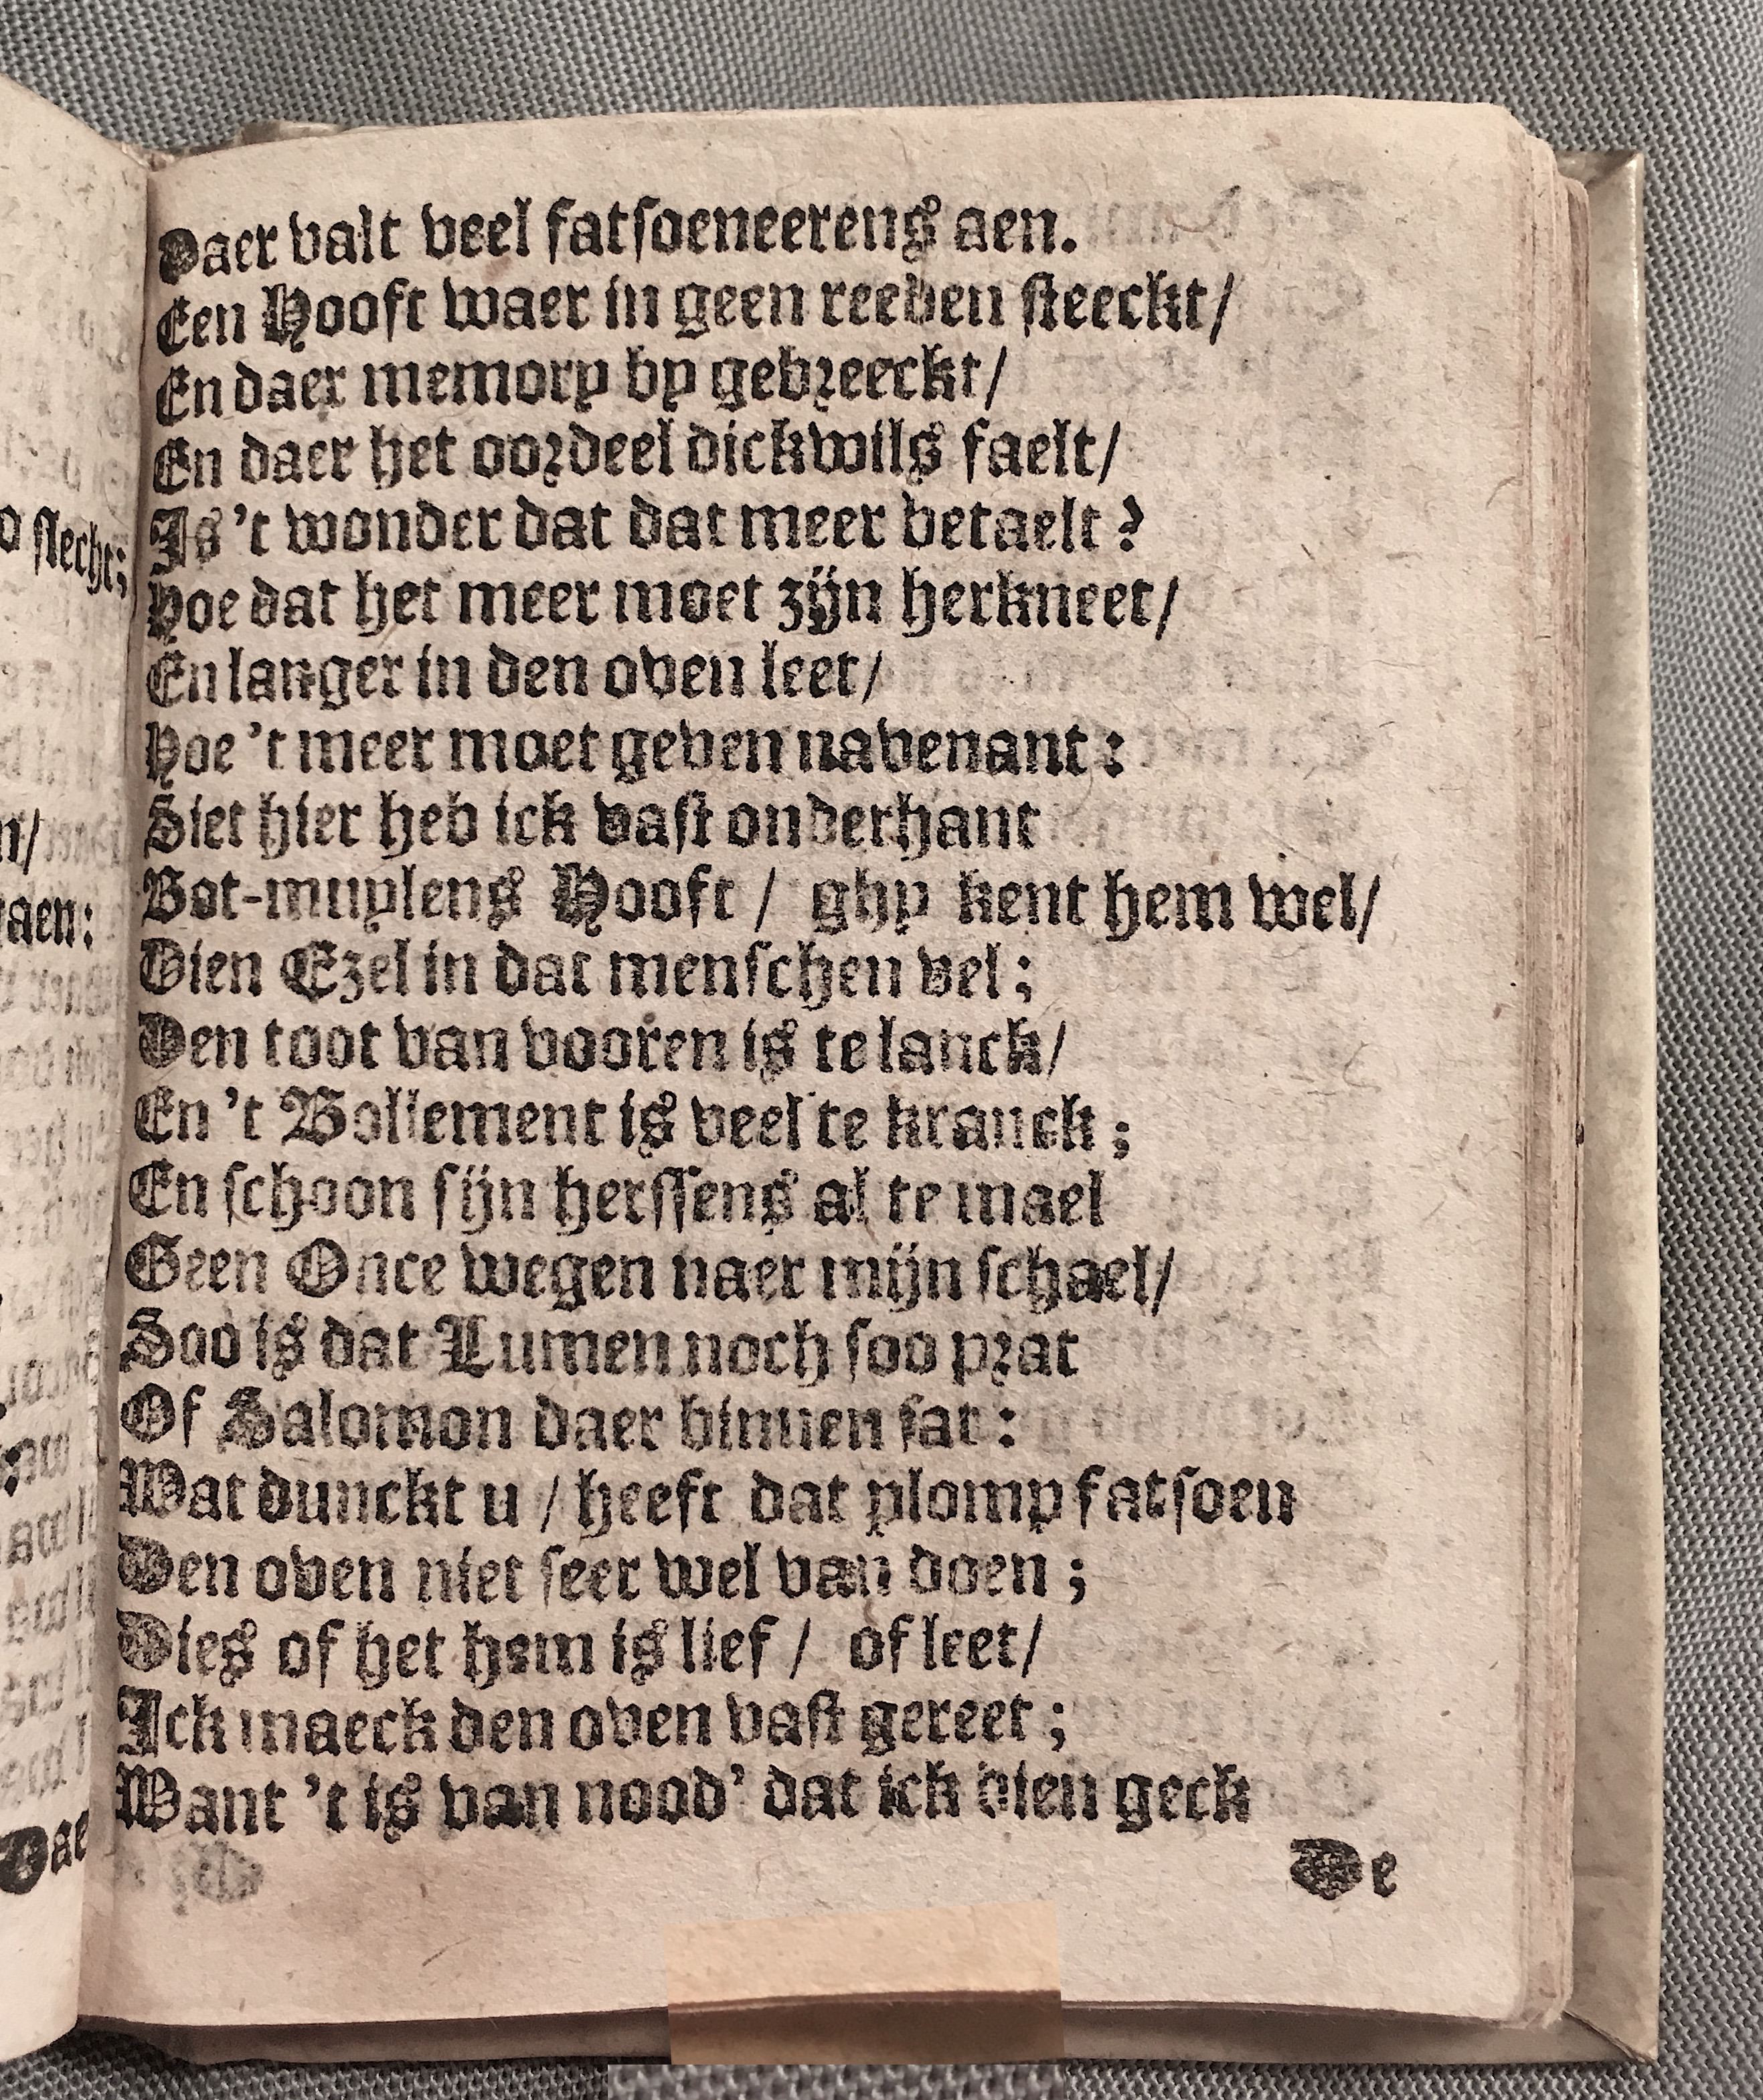 o slecht;
n/
raen:
Dae
Daer valt veel fatsoeneerens aen.
Een Hooft waer in geen reeden steeckt/
En daer memory by gebreeckt/
En daer het oordeel dickwils faelt/
Is 't wonder dat dat meer betaelt?
Hoe dat het meer moet zijn herkneet/
En langer in den oven leet/
Hoe 't meer moet geven navenant:
Siet hier heb ick vast onderhant
Bot-muylens Hooft / ghy kent hem wel/
Dien Ezel in dat menschen vel;
Den toot van vooren is te lanck/
En 't Bollement is veel te kranck;
En schoon sijn herssens al te mael
Geen Once wegen naer mijn schael/
Soo is dat Lumen noch soo prat
Of Salomon daer binnen sat:
Wat dunckt u / heeft dat plomp fatsoen
Den oven niet seer wel van doen;
Dies of het hem is lief / of leet/
Ick maeck den oven vast gereet;
Want 't is van nood' dat ick dien geck
De